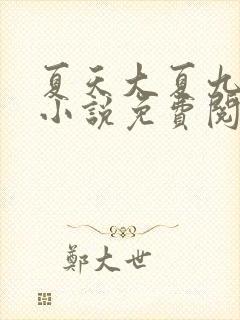 夏天大夏九
小說免費閱
鄭大世